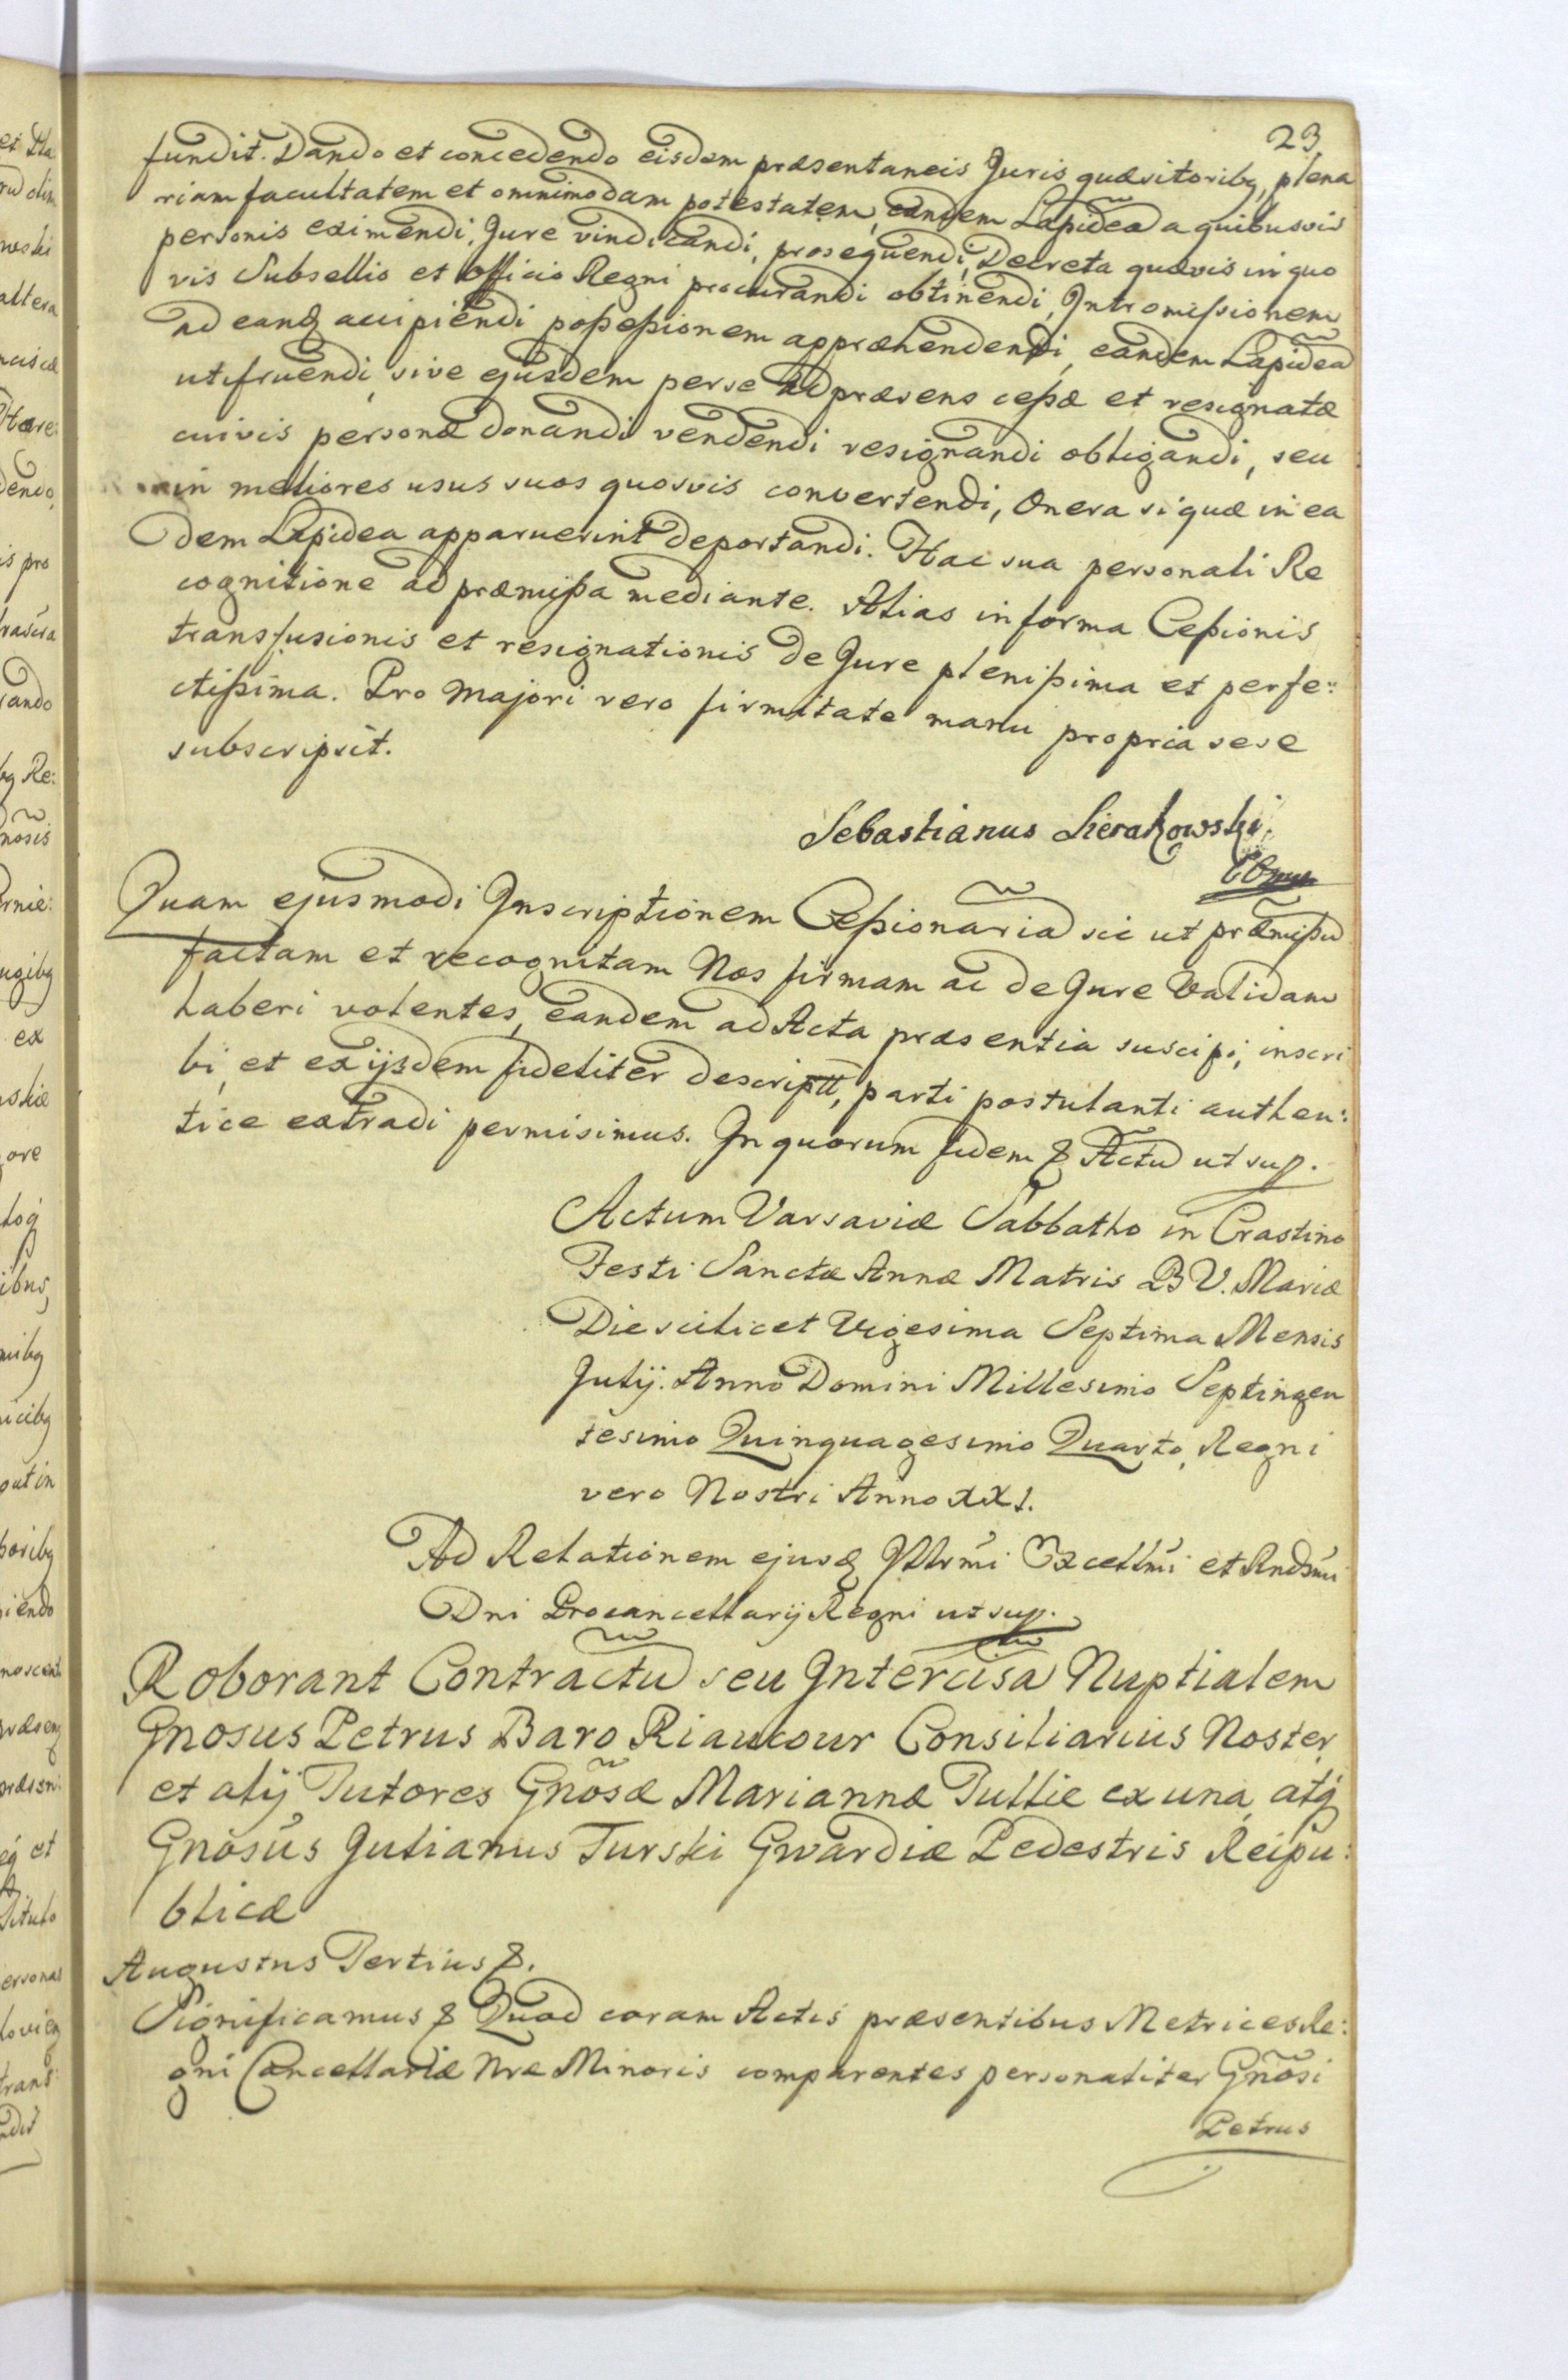 23
fundit. Dando et concedendo eisdem præsentaneis Juris quæsitoribq, plena
riam facultatem et omnimodam potestatem, eandem Lapidea͠ a quibusvis
personis eximendi, Jure vindicandi, prosequendi, Decreta quævis in quo
vis Subsellio et Officio Regni procurandi obtinendi, Intromißionem
ad eandq accipiendi poßeßionem appræhendendi, eandem Lapidea͠
utifruendi, sive ejusdem per se ad præsens ceßæ et resignatæ
cuivis personæ donandi vendendi resignandi obligandi, seu
in meliores usus suos quosvis convertendi, Onera si quæ in ea
dem Lapidea apparuerint deportandi. Hac sua personali Re
cognitione ad præmißa mediante. Alias in forma Ceßionis
transfusionis et resignationis de Jure plenißima et perfe:
ctißima. Pro majori vero firmitate manu propria sese
subscripsit.
Sebastianus Sierakowski
Quam ejusmodi Inscriptionem Ceßionaria͠ sic ut præmißu͠
factam et recognitam Nos firmam ac de Jure Validam
haberi volentes, eandem ad Acta præsentia suscipi, inscri
bi, et ex ijsdem fideliter descriptt, parti postulanti authen:
tice extradi permisimus. In quorum fidem & Actu͠ ut sup.
Actum Varsaviæ Sabbatho in Crastino
Festi Sanctæ Annæ Matris B V. Mariæ
Die scilicet Vigesima Septima Mensis
Julij. Anno Domini Millesimo Septingen
tesimo Quinquagesimo Quarto, Regni
vero Nostri Anno XXI.
Ad Relationem ejusdq Illrm̃i Excellm̃i et Rndsm̃i
Dni Procancellarij Regni ut sup.
Roborant Contractu͠ seu Intercisa͠ Nuptialem
Gnosus Petrus Baro Riaucour Consiliarius Noster
et alij Tutores Gnõsæ Mariannæ Tullie ex una, atq
Gnosus Julianus Turski Gwardiæ Pedestris Reipu:
blicæ
Augustus Tertius &.
Significamus & Quod coram Actis præsentibus Metrices Re:
gni Cancellariæ Nræ Minoris comparentes personaliter Gnõsi
Petrus